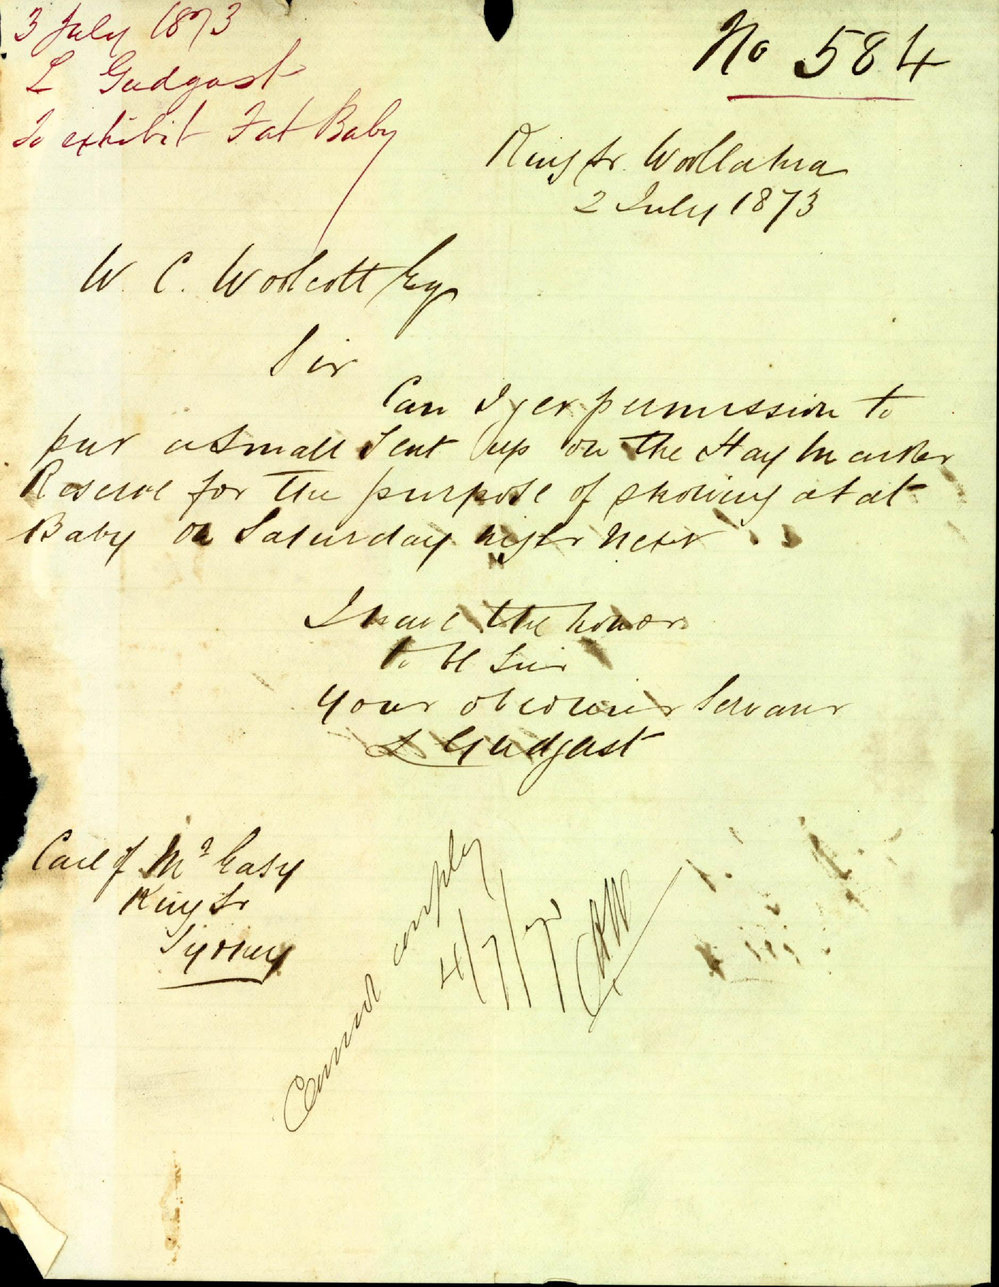 3 July 1873
L Gudgast
To exhibit Fat Baby
No 584
King St. Woollahra
2 July 1873
W. C. Woolcott Esq
Sir
Can I get permission to
put a Small Tent up on the Hay Market
Reserve for the purpose of showing a fat
Baby on Saturday night next
I have the honor
to be Sir
your obedient Servant
L Gudgast
Care of Mr Easy
King St
Sydney
Cannot comply
4/7/73